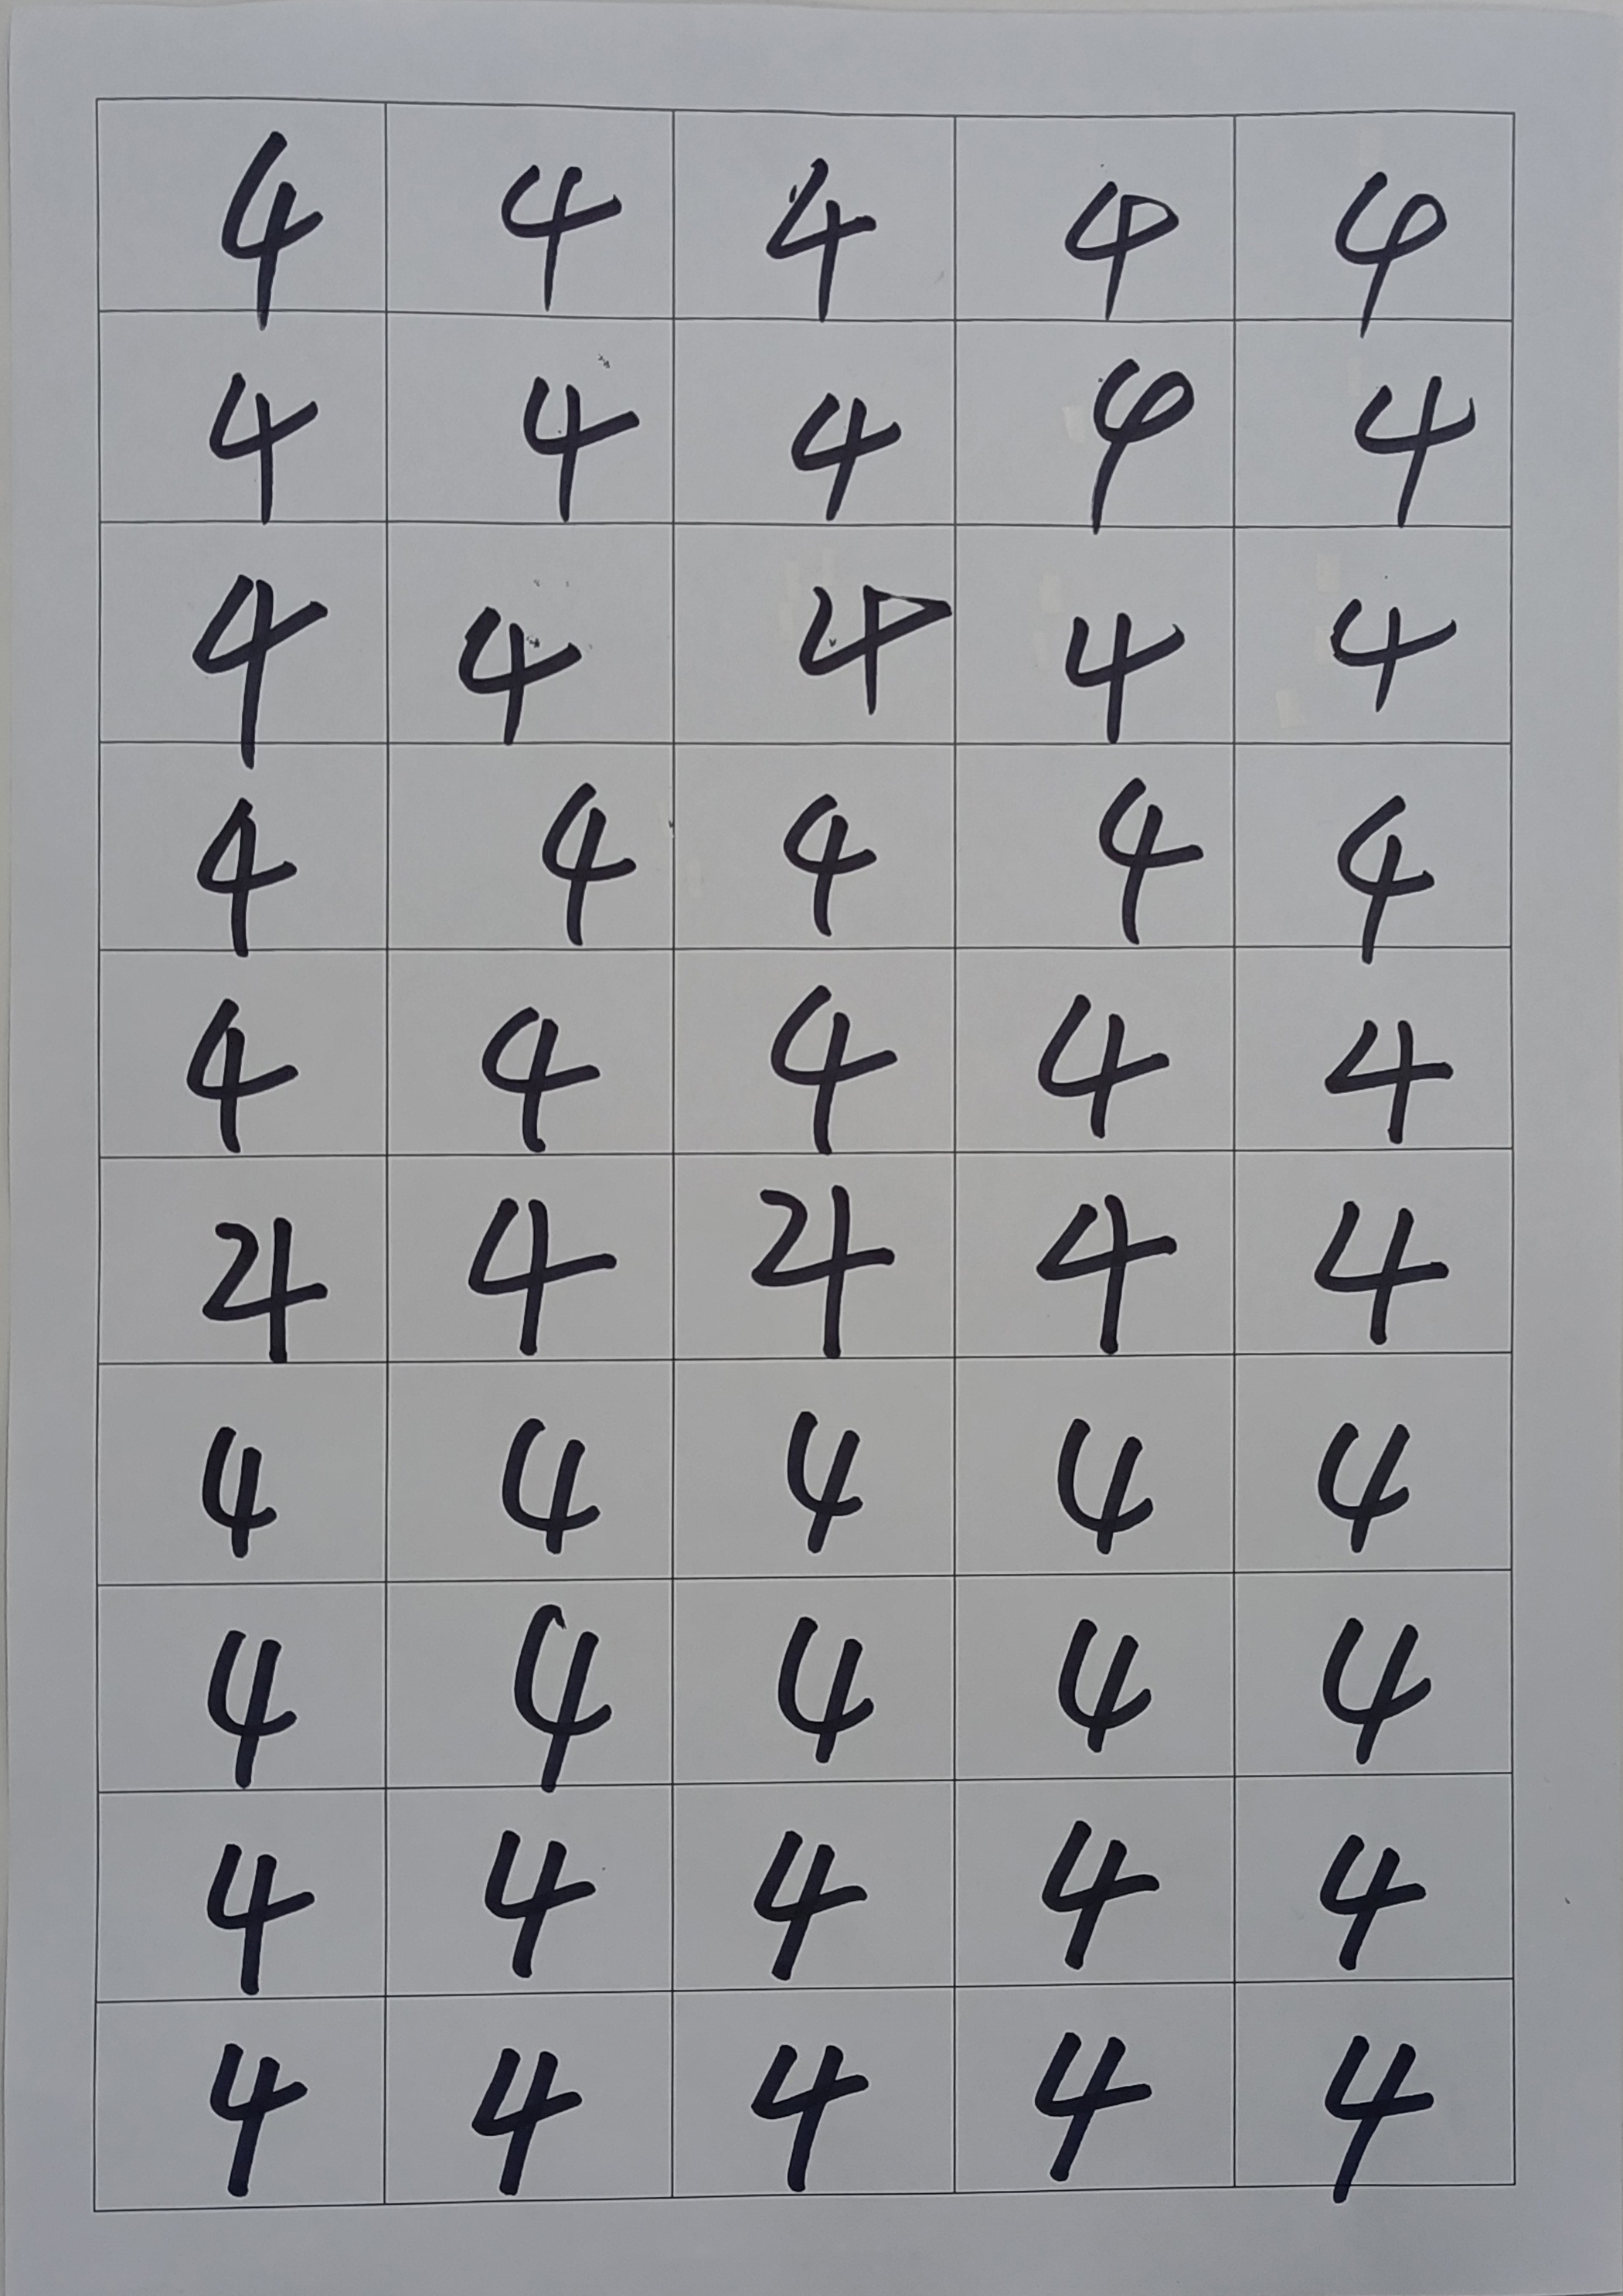 4 4 4 4 4
4 4 4 4 4
4 4 4 4 4
4 4 4 4 4
4 4 4 4 4
4 4 4 4 4
4 4 4 4 4
4 4 4 4 4
4 4 4 4 4
4 4 4 4 4